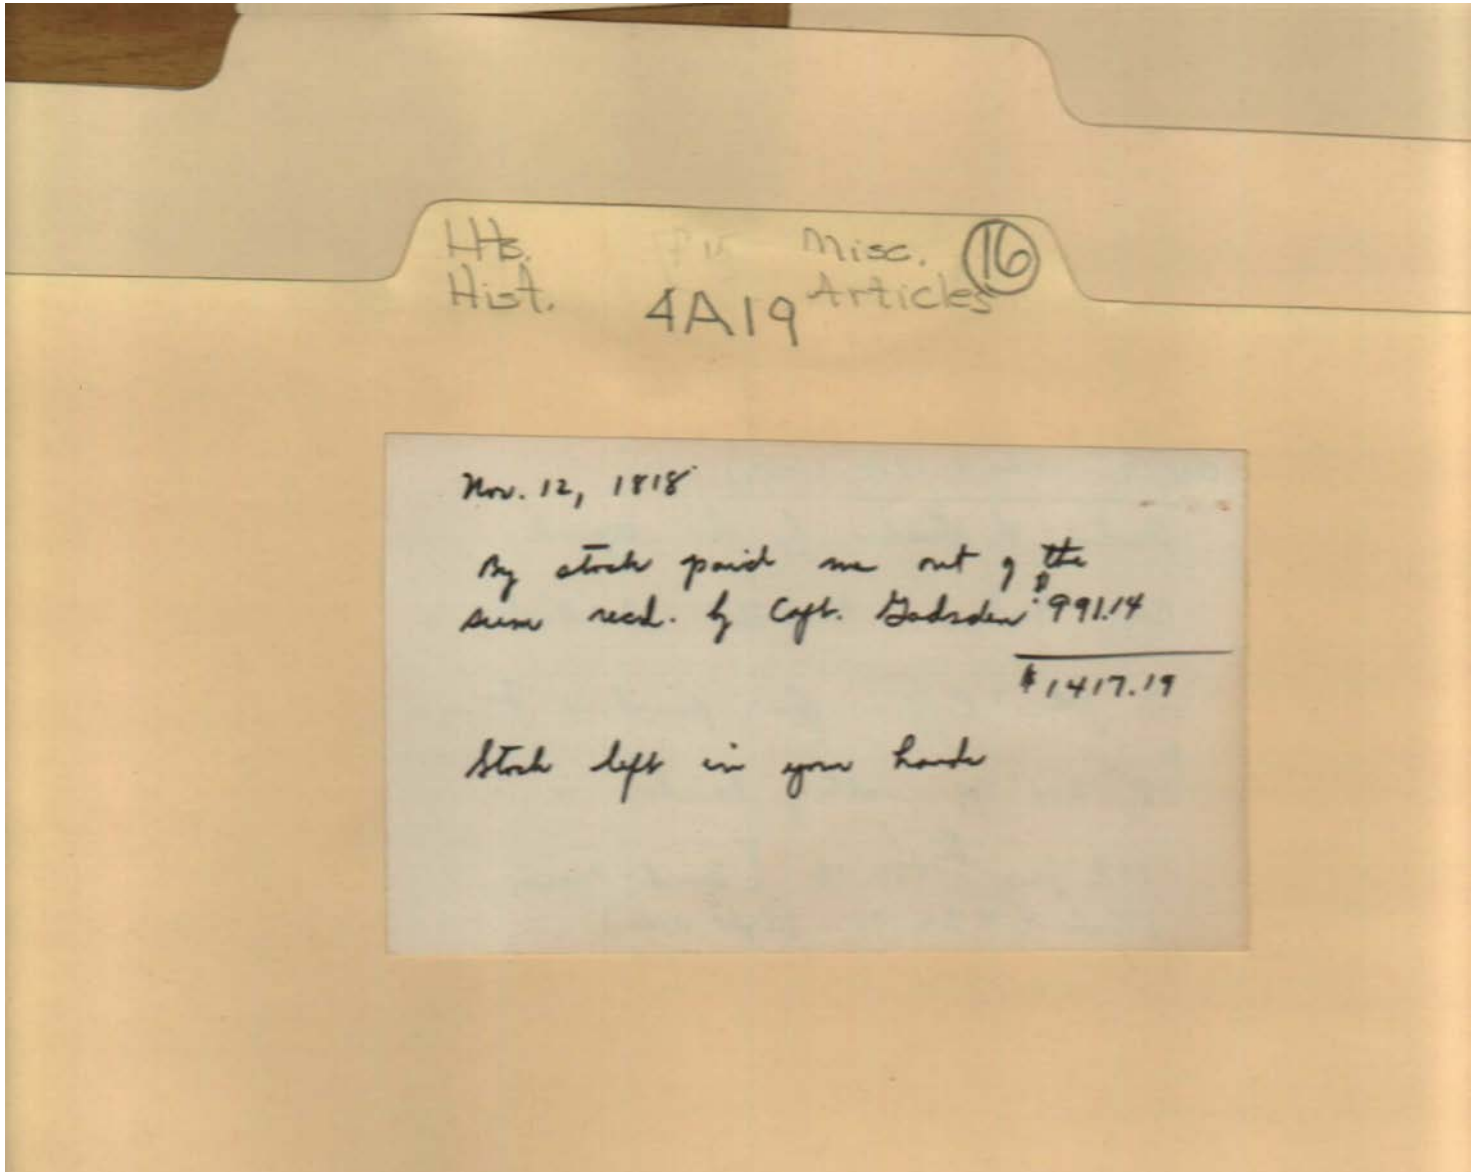 Hts. Misc. 16
Hist. 4A19 Articles
Nov. 12, 1818
By stock paid me out of the
sum recd. by Capt. Gadsden $991.14
$1417.19
Stock left in your hands